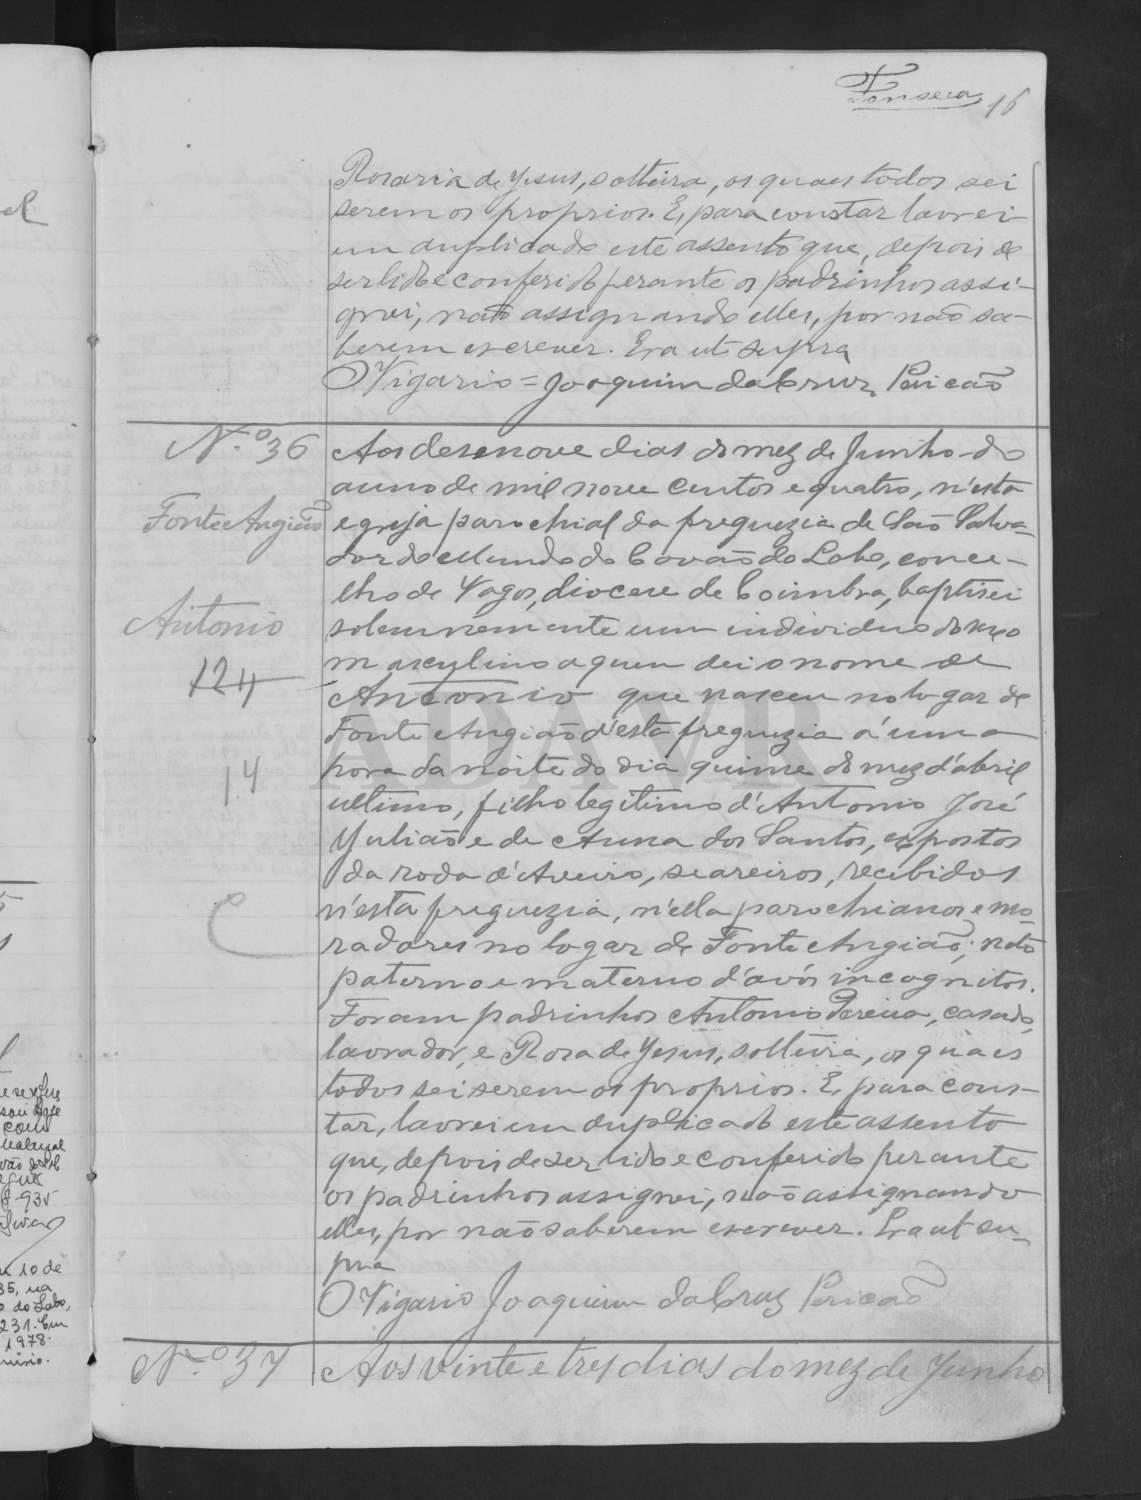 Fonseca 16
Rosaria de Jesus, solteira, os quaes todos sei
serem os proprios. E, para constar lavrei
em duplicado este assento que, depois de
ser lido e conferido perante os padrinhos assi-
gnei, não assignando elles, por não sa-
berem escrever. Era ut supra
O Vigario = Joaquim da Cruz Pericão
N.º 36
Fonte Angião
Antonio
124
14
C
Aos desenove dias do mez de Junho do
anno de mil nove centos e quatro, n'esta
egreja parochial da freguezia de São Salva-
dor do Mundo do Covão do Lobo, conce-
lho de Vagos, diocese de Coimbra, baptisei
solemnemente um individuo do sexo
masculino a quem dei o nome de
Antonio que nasceu no logar de
Fonte Angião d'esta freguezia á uma
hora da noite do dia quinze do mez d'abril
ultimo, filho legitimo d'Antonio José
Julião e de Anna dos Santos, expostos
da roda d'Aveiro, seareiros, recebidos
n'esta freguezia, n'ella parochianos e mo-
radores no logar de Fonte Angião; neto
paterno e materno d'avós incognitos.
Foram padrinhos Antonio Pereira, casado,
lavrador, e Rosa de Jesus, solteira, os quaes
todos sei serem os proprios. E, para cons-
tar, lavrei em duplicado este assento
que, depois de ser lido e conferido perante
os padrinhos assignei, não assignando
elles, por não saberem escrever. Era ut su-
pra
O Vigario Joaquim da Cruz Pericão
N.º 37
Aos vinte e tres dias do mez de Junho
ADAVR
com
935
10 de
35, na
do Lobo,
231. Em
1978.